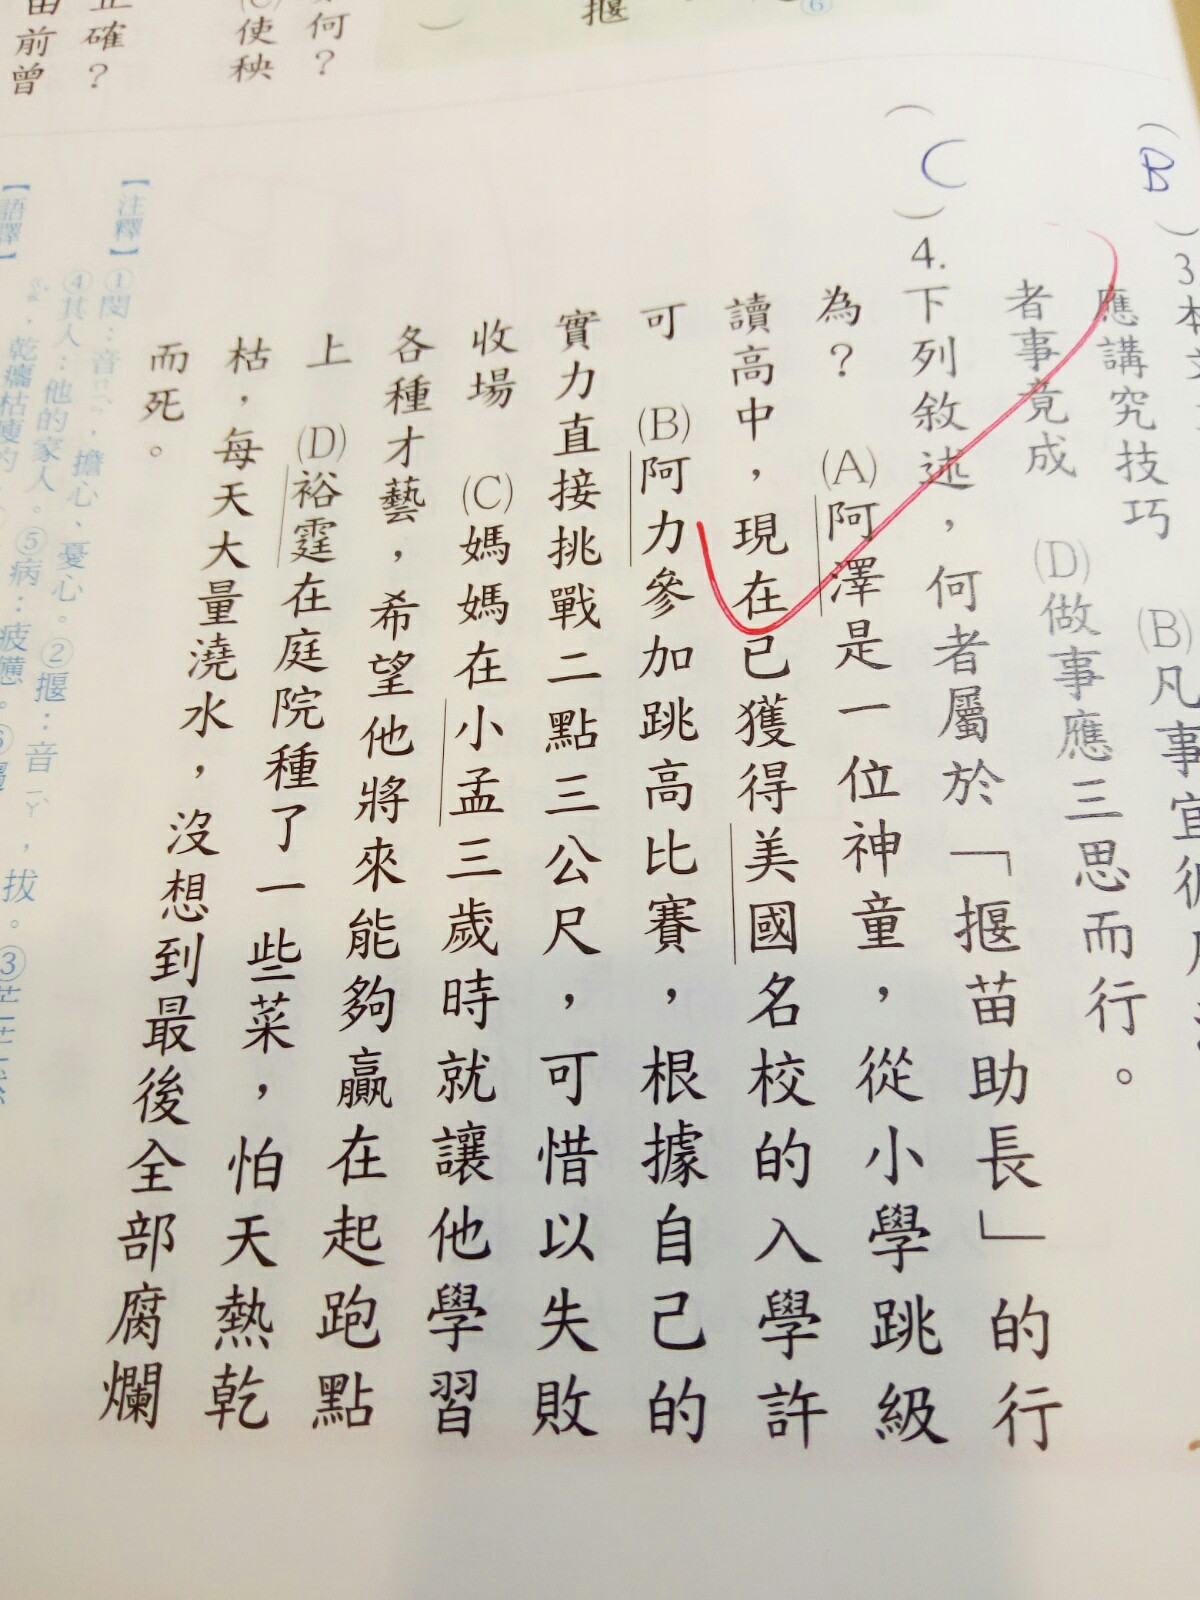 揠
⑥
何？
使秧
正確？
苗前曾
(B)
應講究技巧 (B)凡事宜
者事竟成 (D)做事應三思而行。
(C)4.下列敘述，何者屬於「揠苗助長」的行
為？ (A)阿澤是一位神童，從小學跳級
讀高中，現在已獲得美國名校的入學許
可 (B)阿力參加跳高比賽，根據自己的
實力直接挑戰二點三公尺，可惜以失敗
收場 (C)媽媽在小孟三歲時就讓他學習
各種才藝，希望他將來能夠贏在起跑點
上 (D)裕霆在庭院種了一些菜，怕天熱乾
枯，每天大量澆水，沒想到最後全部腐爛
而死。
【注釋】①閔：音ㄇㄧㄣˇ，擔心、憂心。②揠：音ㄧㄚˋ，拔。③芒芒然
④其人：他的家人。⑤病：疲憊。⑥
，乾癟枯瘦的
【語譯】